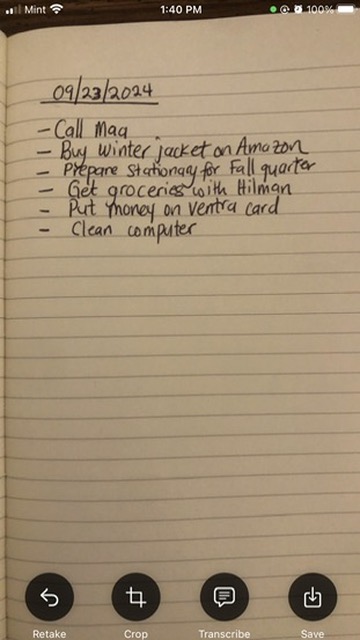 Mint 1:40 PM 100%
09/23/2024
- Call Maa
- Buy winter jacket on Amazon
- Prepare Stationary for Fall quarter
- Get groceries with Hilman
- Put money on ventra card
- Clean computer
Retake Crop Transcribe Save